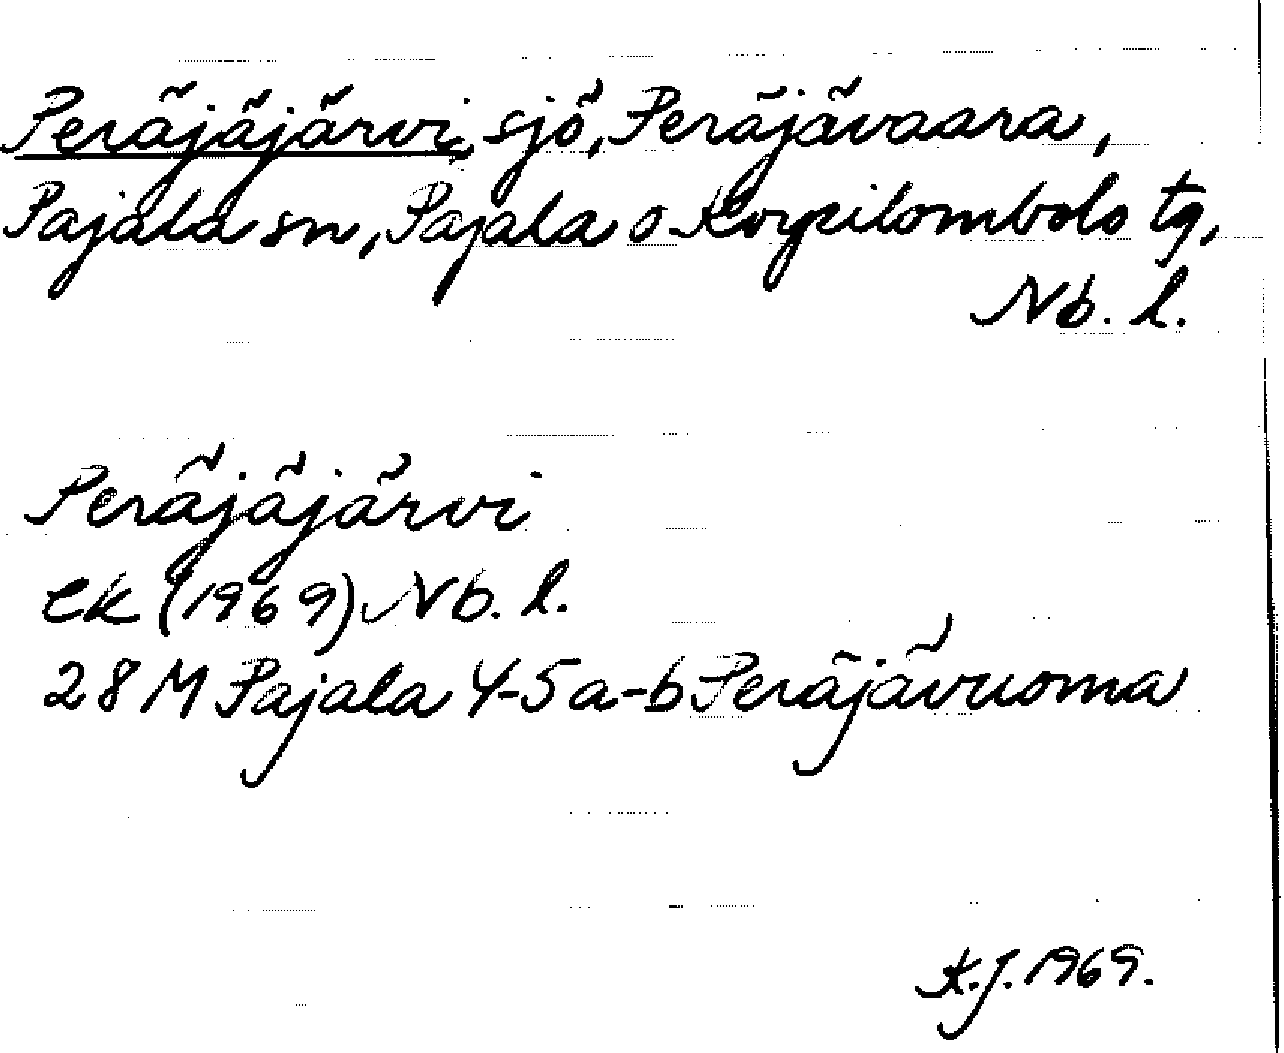 Peräjäjärvi, sjö, Peräjävaara,
Pajala sn, Pajala o. Korpilombolo tg,
Nb. l.
Peräjäjärvi
ek (1969) Nb. l.
28 M Pajala 4-5 a-b Peräjävuoma
K.J. 1969.